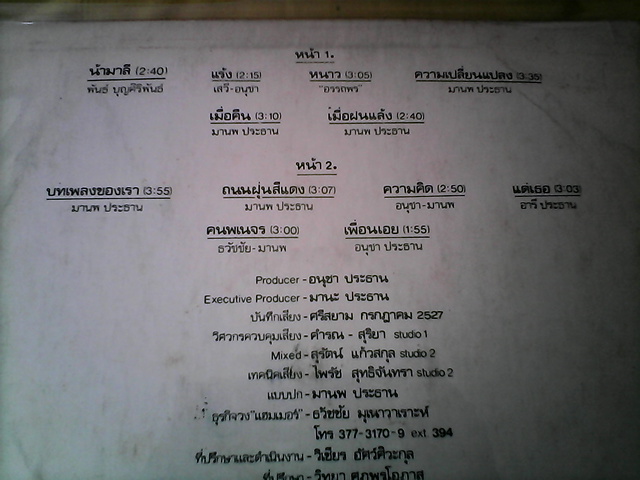 หน้า 1.
น้ำมาลี (2:40) แร้ง (2:15) หนาว (3:05) ความเปลี่ยนแปลง (3:35)
พันธ์ บุญศิริพันธ์ เสรี-อนุชา "อรรถพร" มานพ ประธาน
เมื่อคืน (3:10) เมื่อฝนแล้ง (2:40)
มานพ ประธาน มานพ ประธาน
หน้า 2.
บทเพลงของเรา (3:55) ถนนฝุ่นสีแดง (3:07) ความคิด (2:50) แด่เธอ (3:03)
มานพ ประธาน มานพ ประธาน อนุชา-มานพ อารี ประธาน
คนพเนจร (3:00) เพื่อนเอย (1:55)
ธวัชชัย-มานพ อนุชา ประธาน
Producer - อนุชา ประธาน
Executive Producer - มานะ ประธาน
บันทึกเสียง - ศรีสยาม กรกฎาคม 2527
วิศวกรควบคุมเสียง - ดำรณ - สุริยา studio 1
Mixed - สุรัตน์ แก้วสกุล studio 2
เทคนิคเสียง - ไพรัช สุทธิจันทรา studio 2
แบบปก - มานพ ประธาน
ธุรกิจวง "แฮมเมอร์" - ธวัชชัย มุเนาวาเราะห์
โทร 377-3170-9 ext 394
ที่ปรึกษาและดำเนินงาน - วิเชียร อัศว์ศิวะกุล
ที่ปรึกษา - วิทยา ศุภพรโอภาส